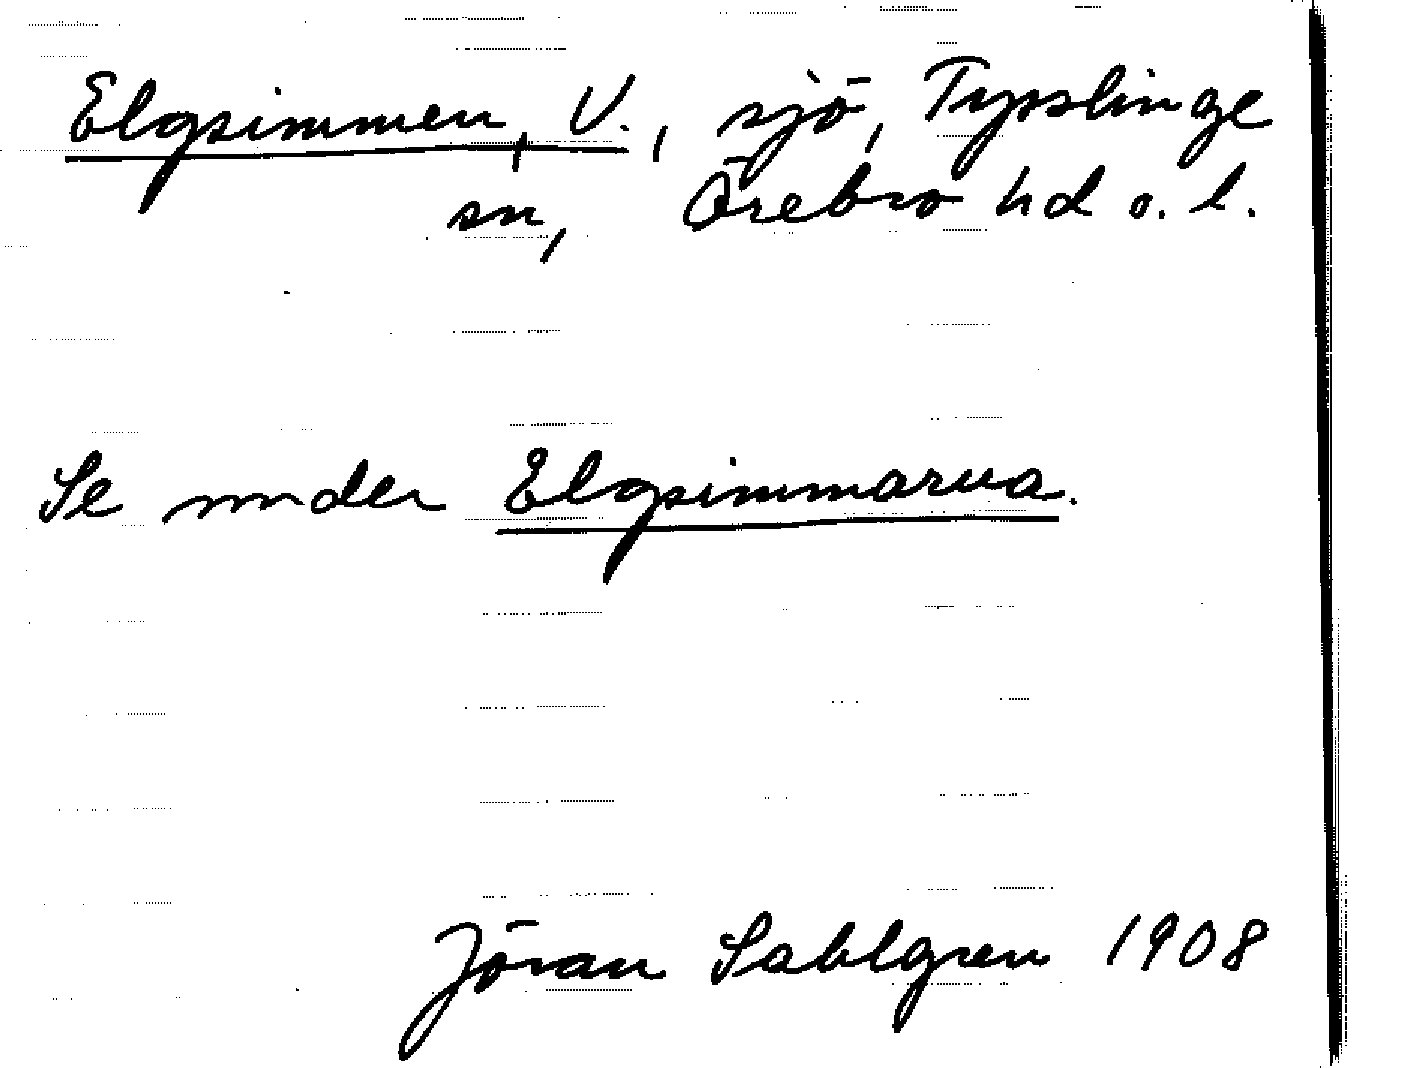 Elgsimmen, V., sjö, Tysslinge
sn, Örebro hd o. l.
Se under Elgsimmarna.
Jöran Sahlgren 1908